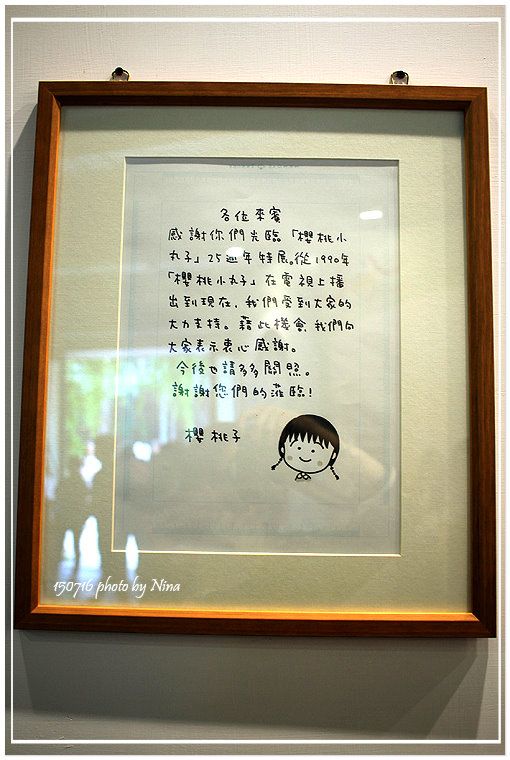 各位來賓
感謝你們光臨「櫻桃小
丸子」25週年特展。從1990年
「櫻桃小丸子」在電視上播
出到現在，我們受到大家的
大力支持。藉此機會，我們向
大家表示衷心感謝。
今後也請多多關照。
謝謝您們的蒞臨！
櫻桃子
150716 photo by Nina